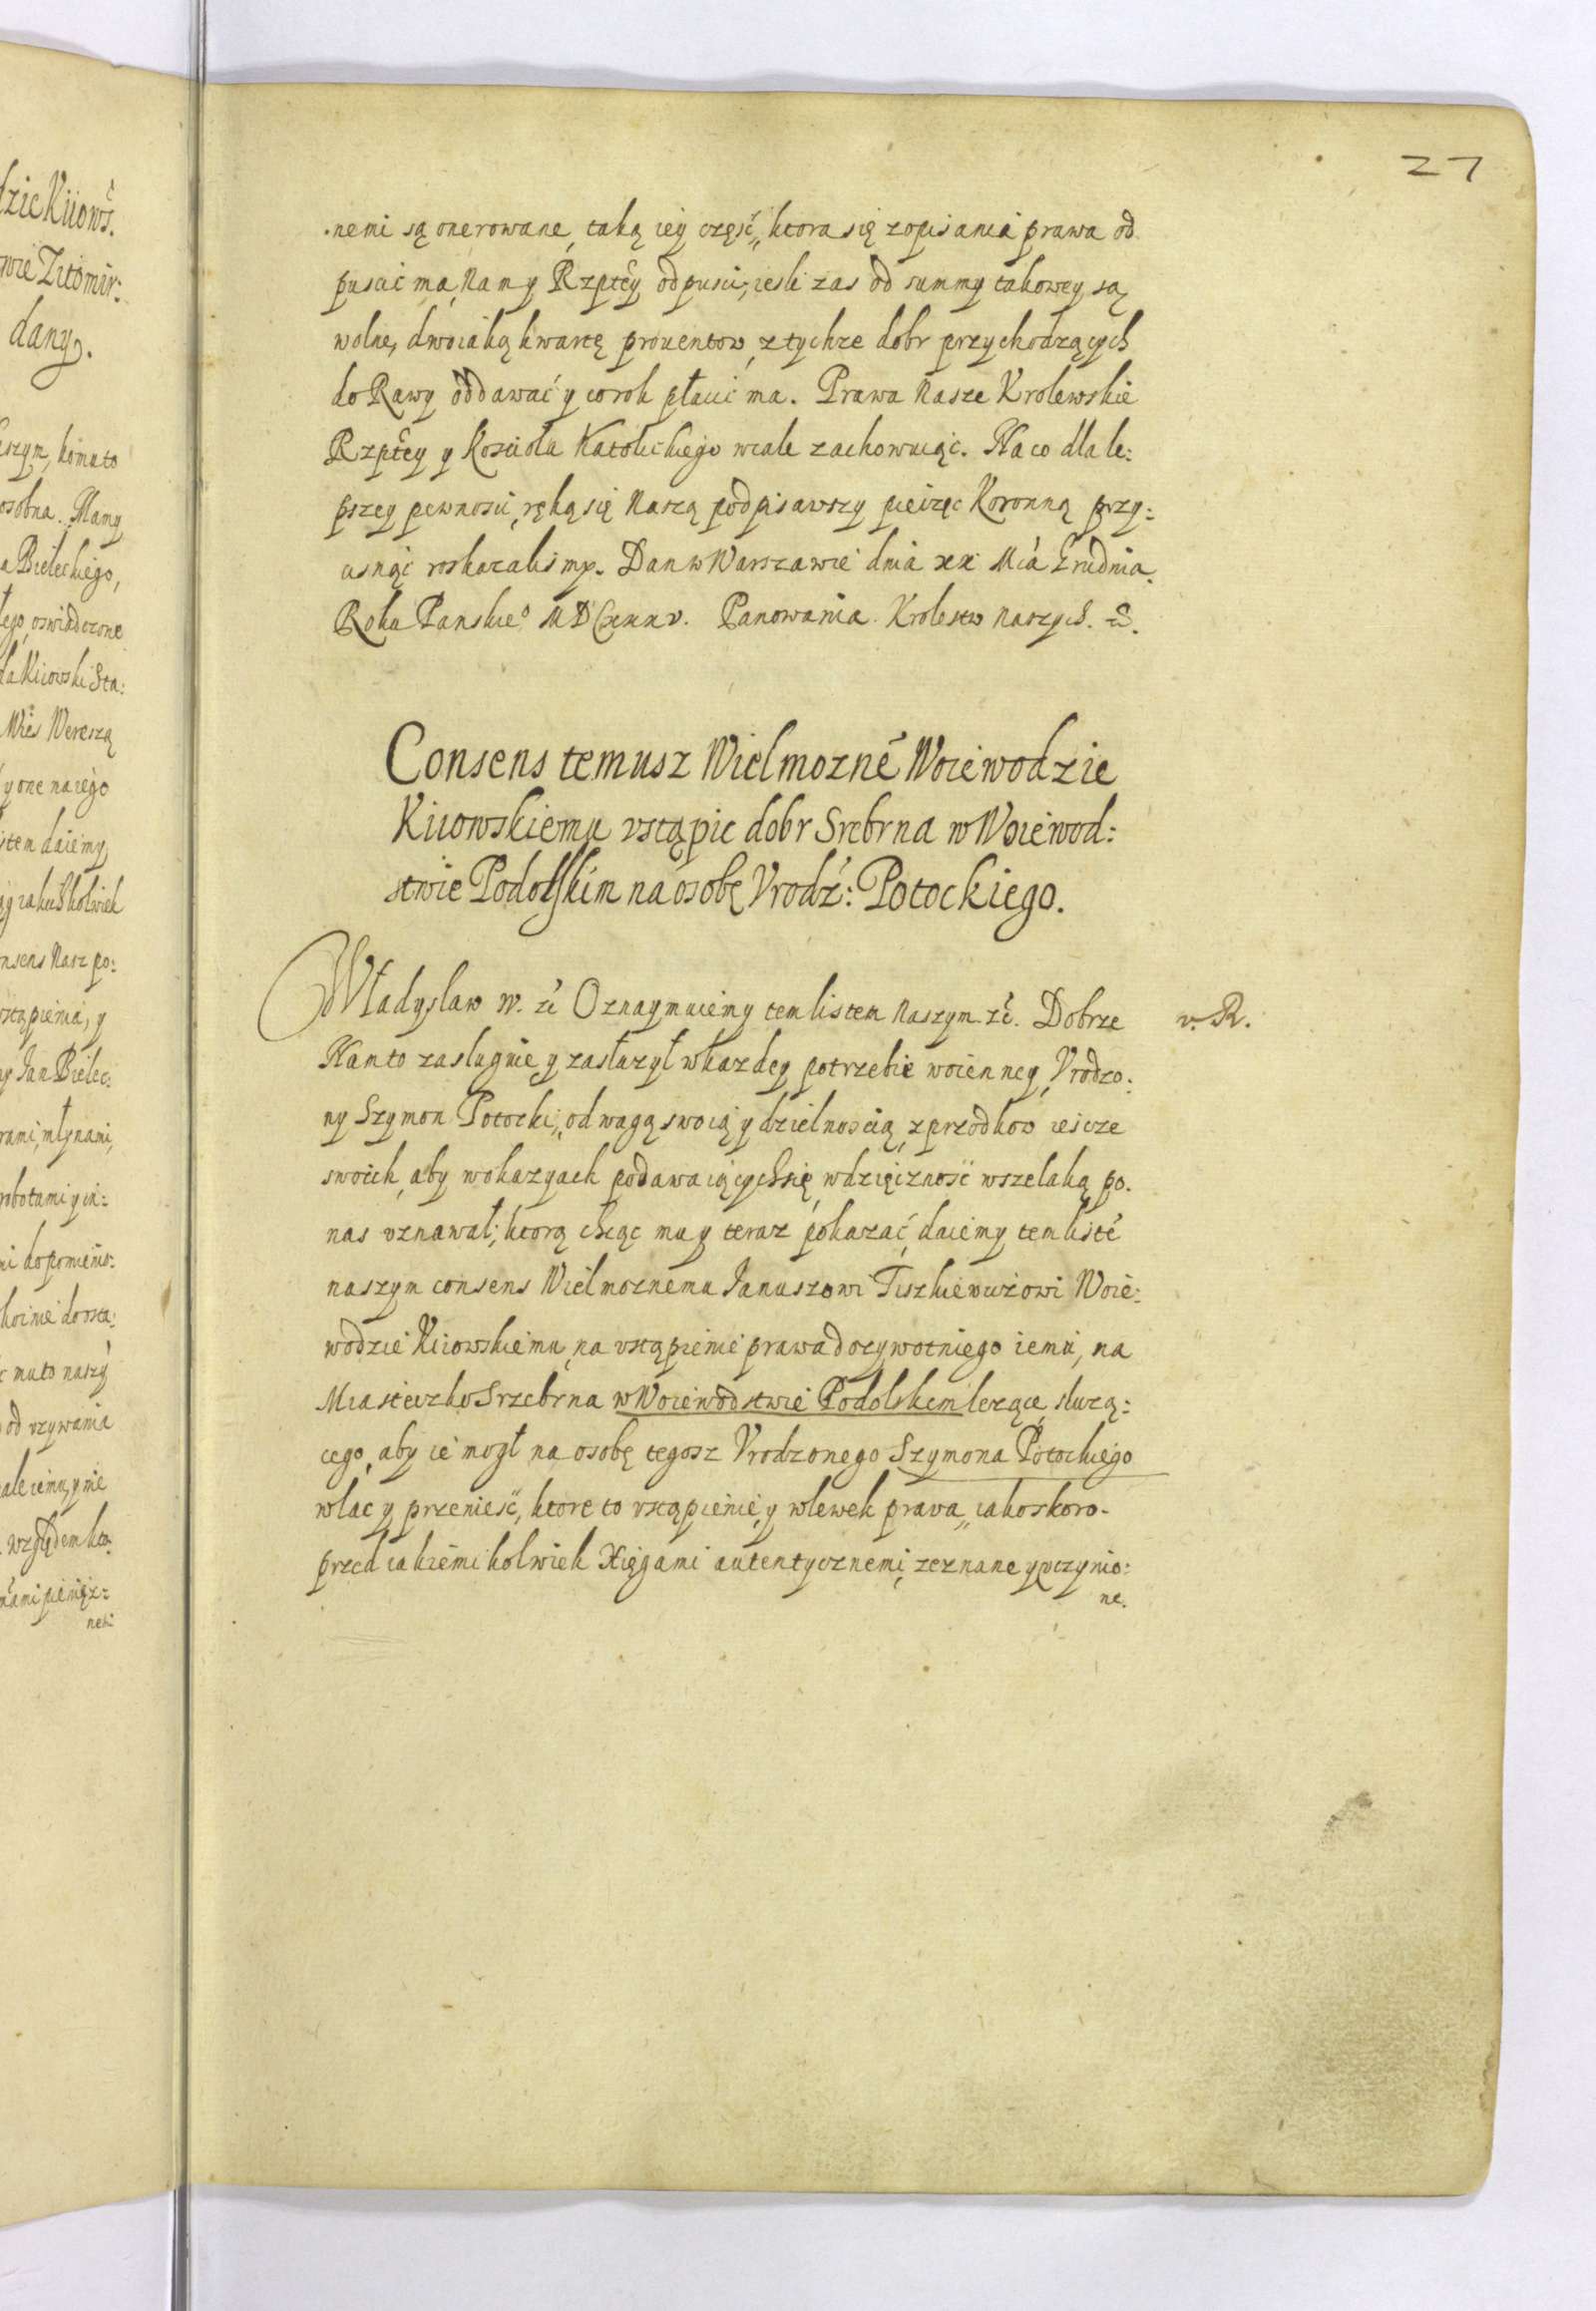 27
dzie Kiiows.
wie Zitomir:
dany.
osobna. Mamy
a Bieleckiego,
oswiadczone
Kiiowski Sta:
Wies Wereszą
y one na iego
daiemy
nsens Nasz po:
ustąpienia, y
Jan Bielec:
młynami,
robotami y in:
mu to naszy
od uzywania
nemi
nemi są onerowane, taką iey część, ktora się z opisania prawa od
puscic ma, Nam y Rzptey odpusci, iesli zas od summy takowey są
wolne, dwoiaką kwartę prouentow z tychze dobr przychodzących
do Rawy oddawać y corok płacić ma. Prawa Nasze Krolewskie
Rzptey y Kościoła Katolickiego wcale zachowuiąc. Na co dla le:
pszey pewnosci, ręką się Naszą podpisawszy pieczęc Koronną przy:
cisnąć roskazalismy. Dan w Warszawie dnia xx Mca Grudnia.
Roku Panskieo MDCxxxv. Panowania Krolestw Naszych. &.
Consens temusz Wielmozne Woiewodzie
Kiiowskiemu vstąpic dobr Srebrna w Woiewod:
stwie Podolskim na osobę Vrodz: Potockiego.
Władyslaw IV. &c Oznaymuiemy tem listem Naszym. &c. Dobrze
v. R.
Nam to zasluguie y zasłuzył w kazdey potrzebie woienney Vrodzo:
ny Szymon Potocki, odwagą swoią y dzielnoscią z przodkow iescze
swoich, aby w okazyach podawaiących się wdzięczność wszelaką po
nas uznawał; ktorą chcąc mu y teraz pokazać, daiemy tem liste
naszym consens Wielmoznemu Januszowi Tiszkiewiczowi Woie:
wodzie Kiiowskiemu, na vstąpienie prawa dozywotniego iemu, na
Miasteczko Srzebrna w Woiewodstwie Podolskem lezące, sluzą:
cego, aby ie mogł na osobę tegosz Vrodzonego Szymona Potockiego
wlac y przenieść, ktore to vstąpienie, y wlewek prava, iako skoro
przed iakiemikolwiek Xięgami autentycznemi, zeznane y uczynio:
ne.